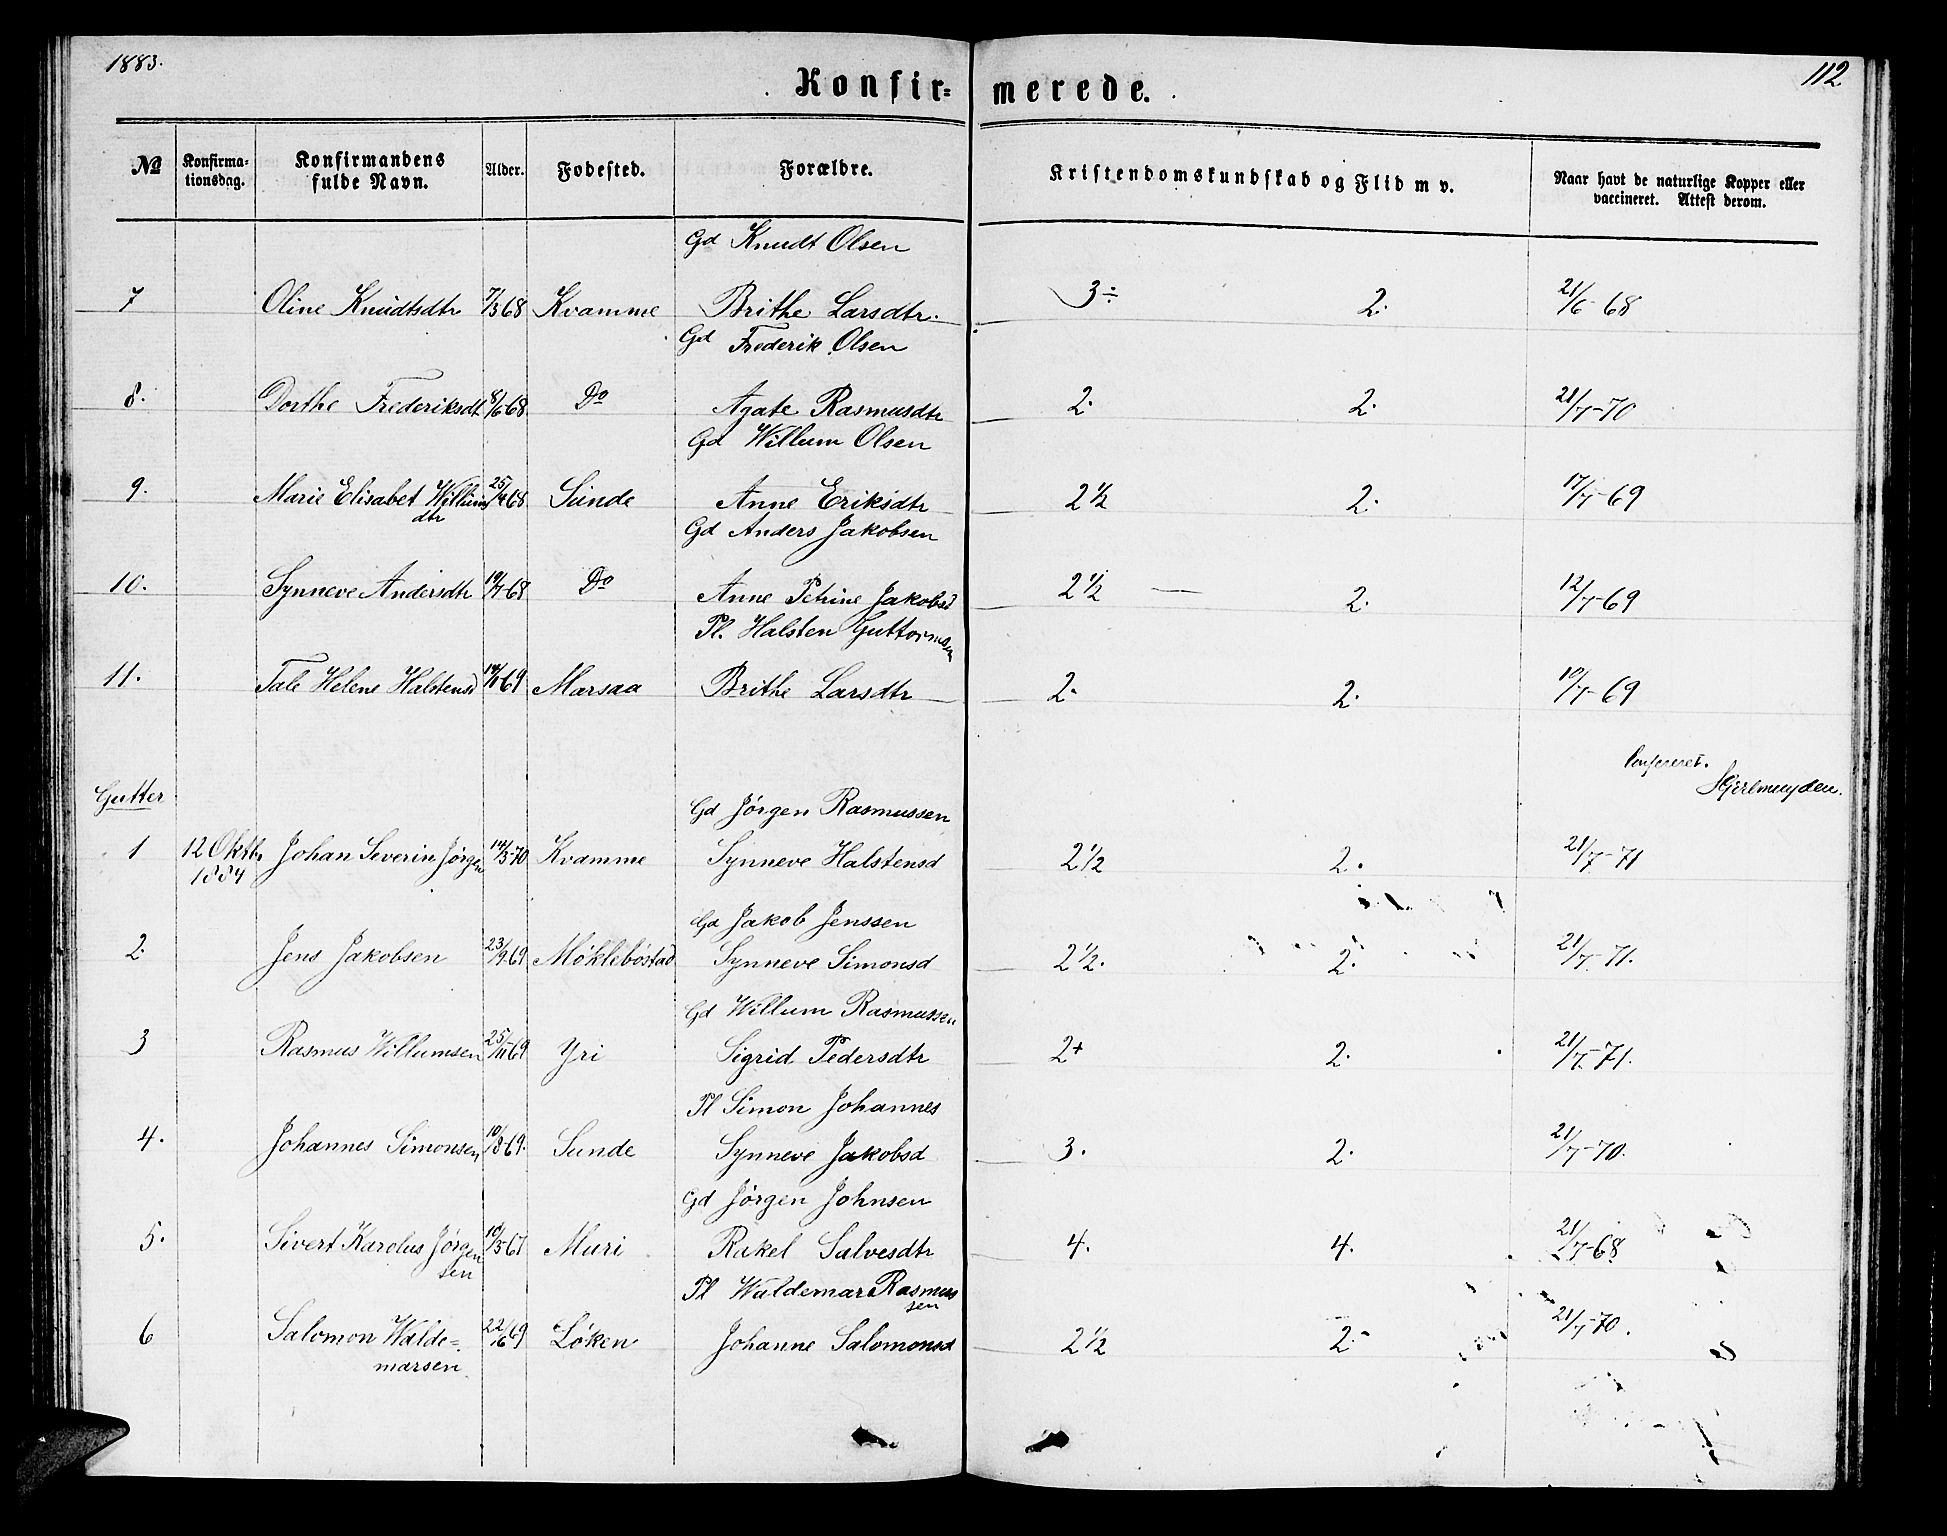 1883.
112
Konfir= merede.
№ Konfirma-tionsdag. Konfirmandens fulde Navn. Alder. Fodested. Forældre. Kristendomskundskab og Flid m v. Naar havt de naturlige Kopper eller vaccineret. Attest derom.
Gd Knudt Olsen
7 Oline Knudtsdtr 7/3 68 Kvamme Brithe Larsdtr. 3÷ 2. 21/6-68
Gd Frederik Olsen
8. Dorthe Frederiksdt 8/6-68 Do Agate Rasmusdtr 2. 2. 21/7-70
Gd Willum Olsen
9. Marie Elisabet Willums 25/4 68 Sunde Anne Eriksdtr 2 1/2 2. 17/7-69
dtr
Gd Anders Jakobsen
10. Synneve Andersdtr 19/7-68 Do Anne Petrine Jakobsd 2 1/2 — 2. 12/7-69
Pl. Halsten Guttormsen
11. Tale Helene Halstensd 14/1 69 Marsaa Brithe Larsdtr 2. 2. 10/7-69
Confereret.
Gutter
Gd Jørgen Rasmussen
1 12 Oktbr Johan Severin Jørgen 14/3-70 Kvamme Synneve Halstensd 2 1/2 2. 21/7-71
1884
Gd Jakob Jenssen
2. Jens Jakobsen 23/9-69 Møklebøstad Synneve Simonsd 2 1/2. 2. 21/7-71.
Gd Willum Rasmussen
3 Rasmus Willumsen 25/11-69 Yri Sigrid Pedersdtr 2+ 2. 21/7-71.
Pl Simon Johannes
4. Johannes Simonsen 10/8-69. Sunde Synneve Jakobsd 3. 2. 21/7-70.
Gd Jørgen Johnsen
5. Sivert Karolus Jørgen 10/3-67 Muri Rakel Salvesdtr 4. 4. 21/7-68
sen
Pl Waldemar Rasmus
sen
6 Salomon Walde= 22/6 69 Løken Johanne Salomonsd 2 1/2 2- 21/7-70.
marsen